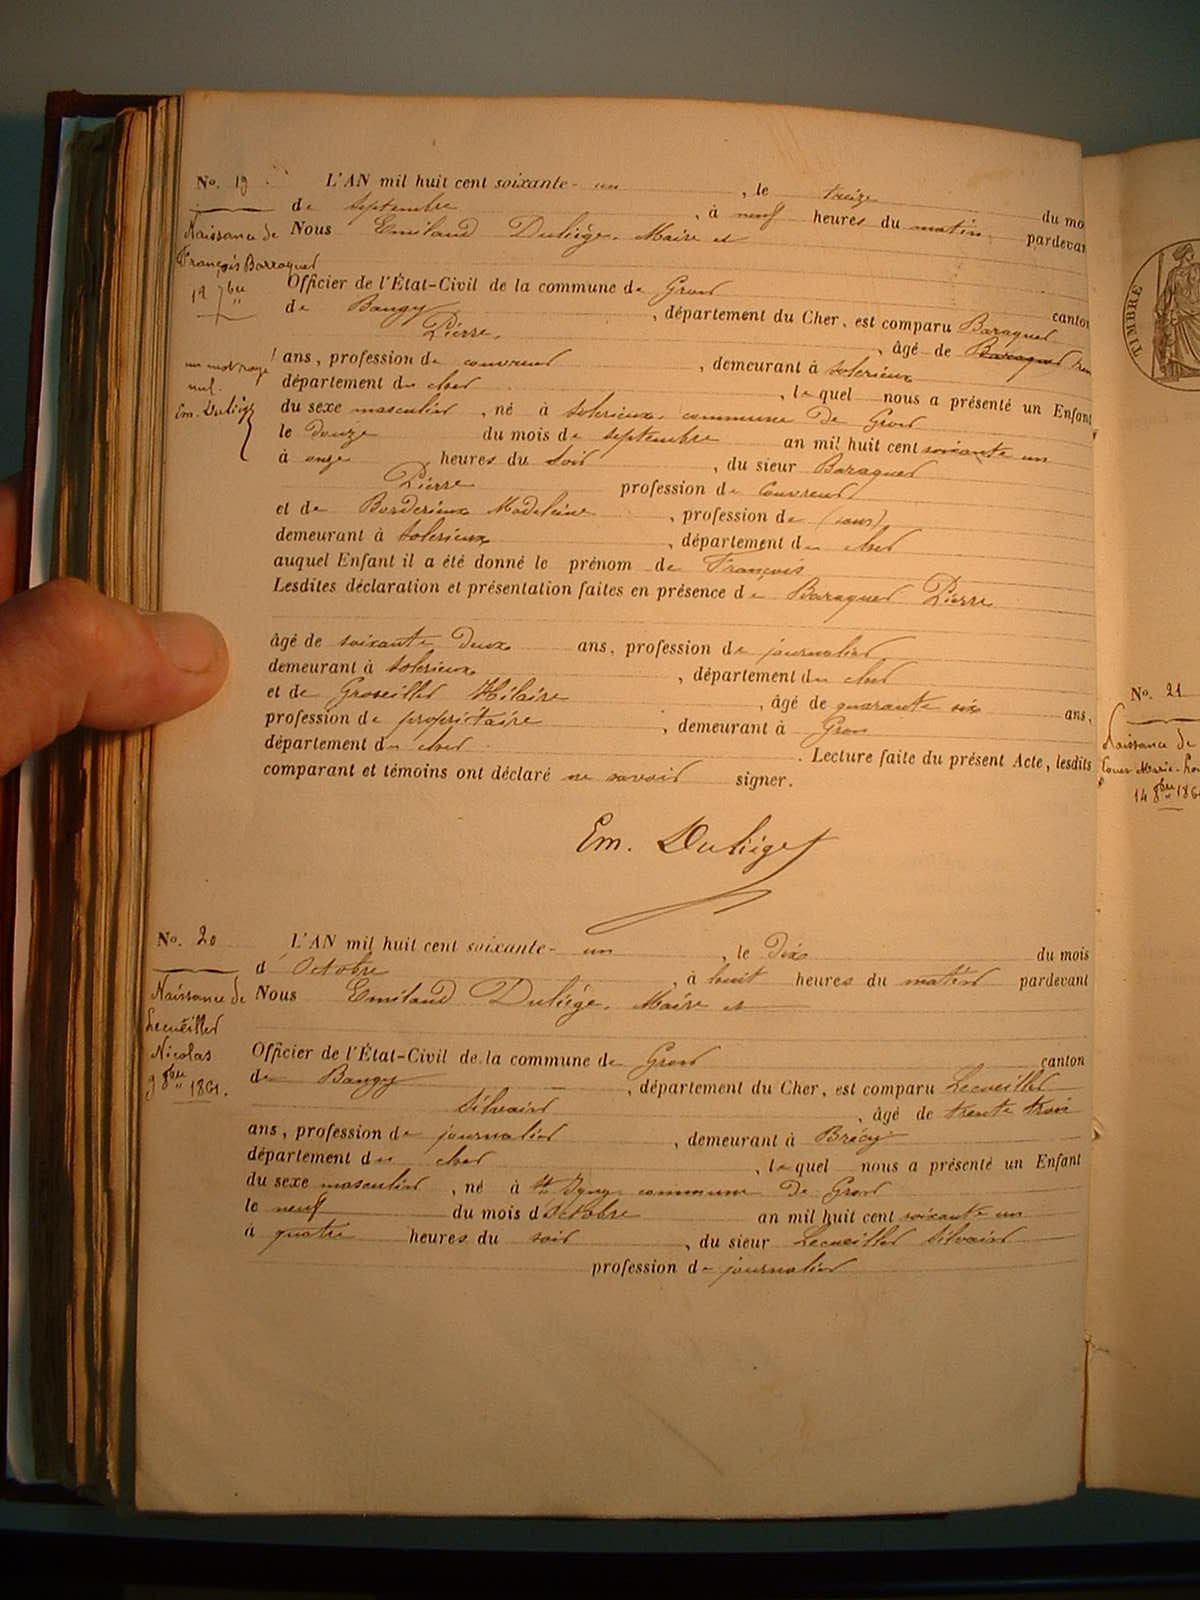 No. 19
L'AN mil huit cent soixante-un, le treize du mo
de septembre, à neuf heures du matin pardevan
Naissance de
François Barraquet
12 7bre
Nous Emiland Duliège, Maire et
Officier de l'État-Civil de la commune de Gron canton
de Baugy, département du Cher, est comparu Baraquet
Pierre, âgé de Baraquet
un mot rayé
nul.
Em. Duliège
ans, profession de couvreur, demeurant à Solerieux
département du cher, lequel nous a présenté un Enfant
du sexe masculin, né à Solerieux commune de Gron
le douze du mois de septembre an mil huit cent soixante un
à onze heures du soir, du sieur Baraquet
Pierre profession de couvreur
et de Borderieux Madeleine, profession de (sans)
demeurant à Solerieux, département du cher
auquel Enfant il a été donné le prénom de François
Lesdites déclaration et présentation faites en présence de Baraquet Pierre
âgé de soixante deux ans, profession de journalier
demeurant à Solerieux, département du cher
et de Groseiller Hilaire, âgé de quarante six ans,
profession de propriétaire, demeurant à Gron
département du cher. Lecture faite du présent Acte, lesdits
comparant et témoins ont déclaré ne savoir signer.
Em. Duliège
No. 20
L'AN mil huit cent soixante-un, le dix du mois
d'Octobre, à huit heures du matin pardevant
Naissance de
Lecueiller
Nicolas
9 8bre 1861.
Nous Emiland Duliège, Maire et
Officier de l'État-Civil de la commune de Gron canton
de Baugy, département du Cher, est comparu Lecueiller
Silvain, âgé de trente trois
ans, profession de journalier, demeurant à Brécy
département du cher, lequel nous a présenté un Enfant
du sexe masculin, né à St Igny commune de Gron
le neuf du mois d'Octobre an mil huit cent soixante un
à quatre heures du soir, du sieur Lecueiller Silvain
profession de journalier
TIMBRE
No. 21
Naissance de
14 8bre 186